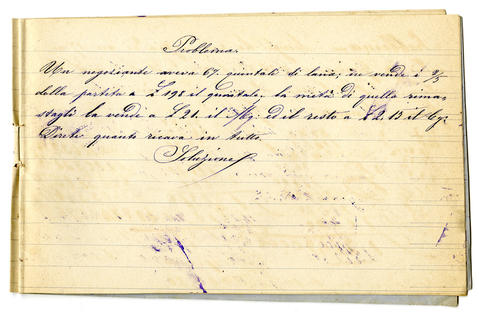 Problema.
Un negoziante aveva 67 quintali di lana; ne vende i 2/5
della partita a £ 190 il quintale, la metà di quella rima-
stagli la vende a £ 2 il Kg; ed il resto a £ 2,15 il Kg:
Direte quanto ricava in tutto.
Soluzione